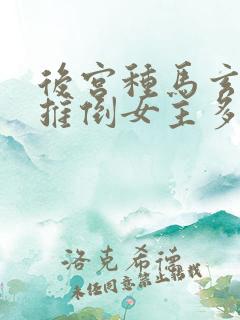 後宮種馬玄
推倒女主多
洛克希德
未经同意禁止转载